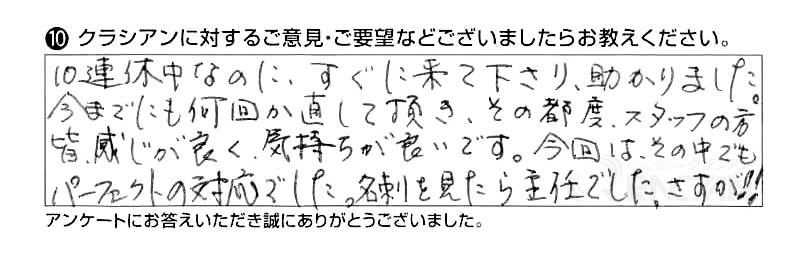 ⑩ クラシアンに対するご意見・ご要望などございましたらお教えください。
10連休中なのに、すぐに来て下さり、助かりました。
今までにも何回か直して頂き、その都度、スタッフの方
皆、感じが良く、気持ちが良いです。今回は、その中でも
パーフェクトの対応でした。名刺を見たら主任でした。さすが!!
アンケートにお答えいただき誠にありがとうございました。